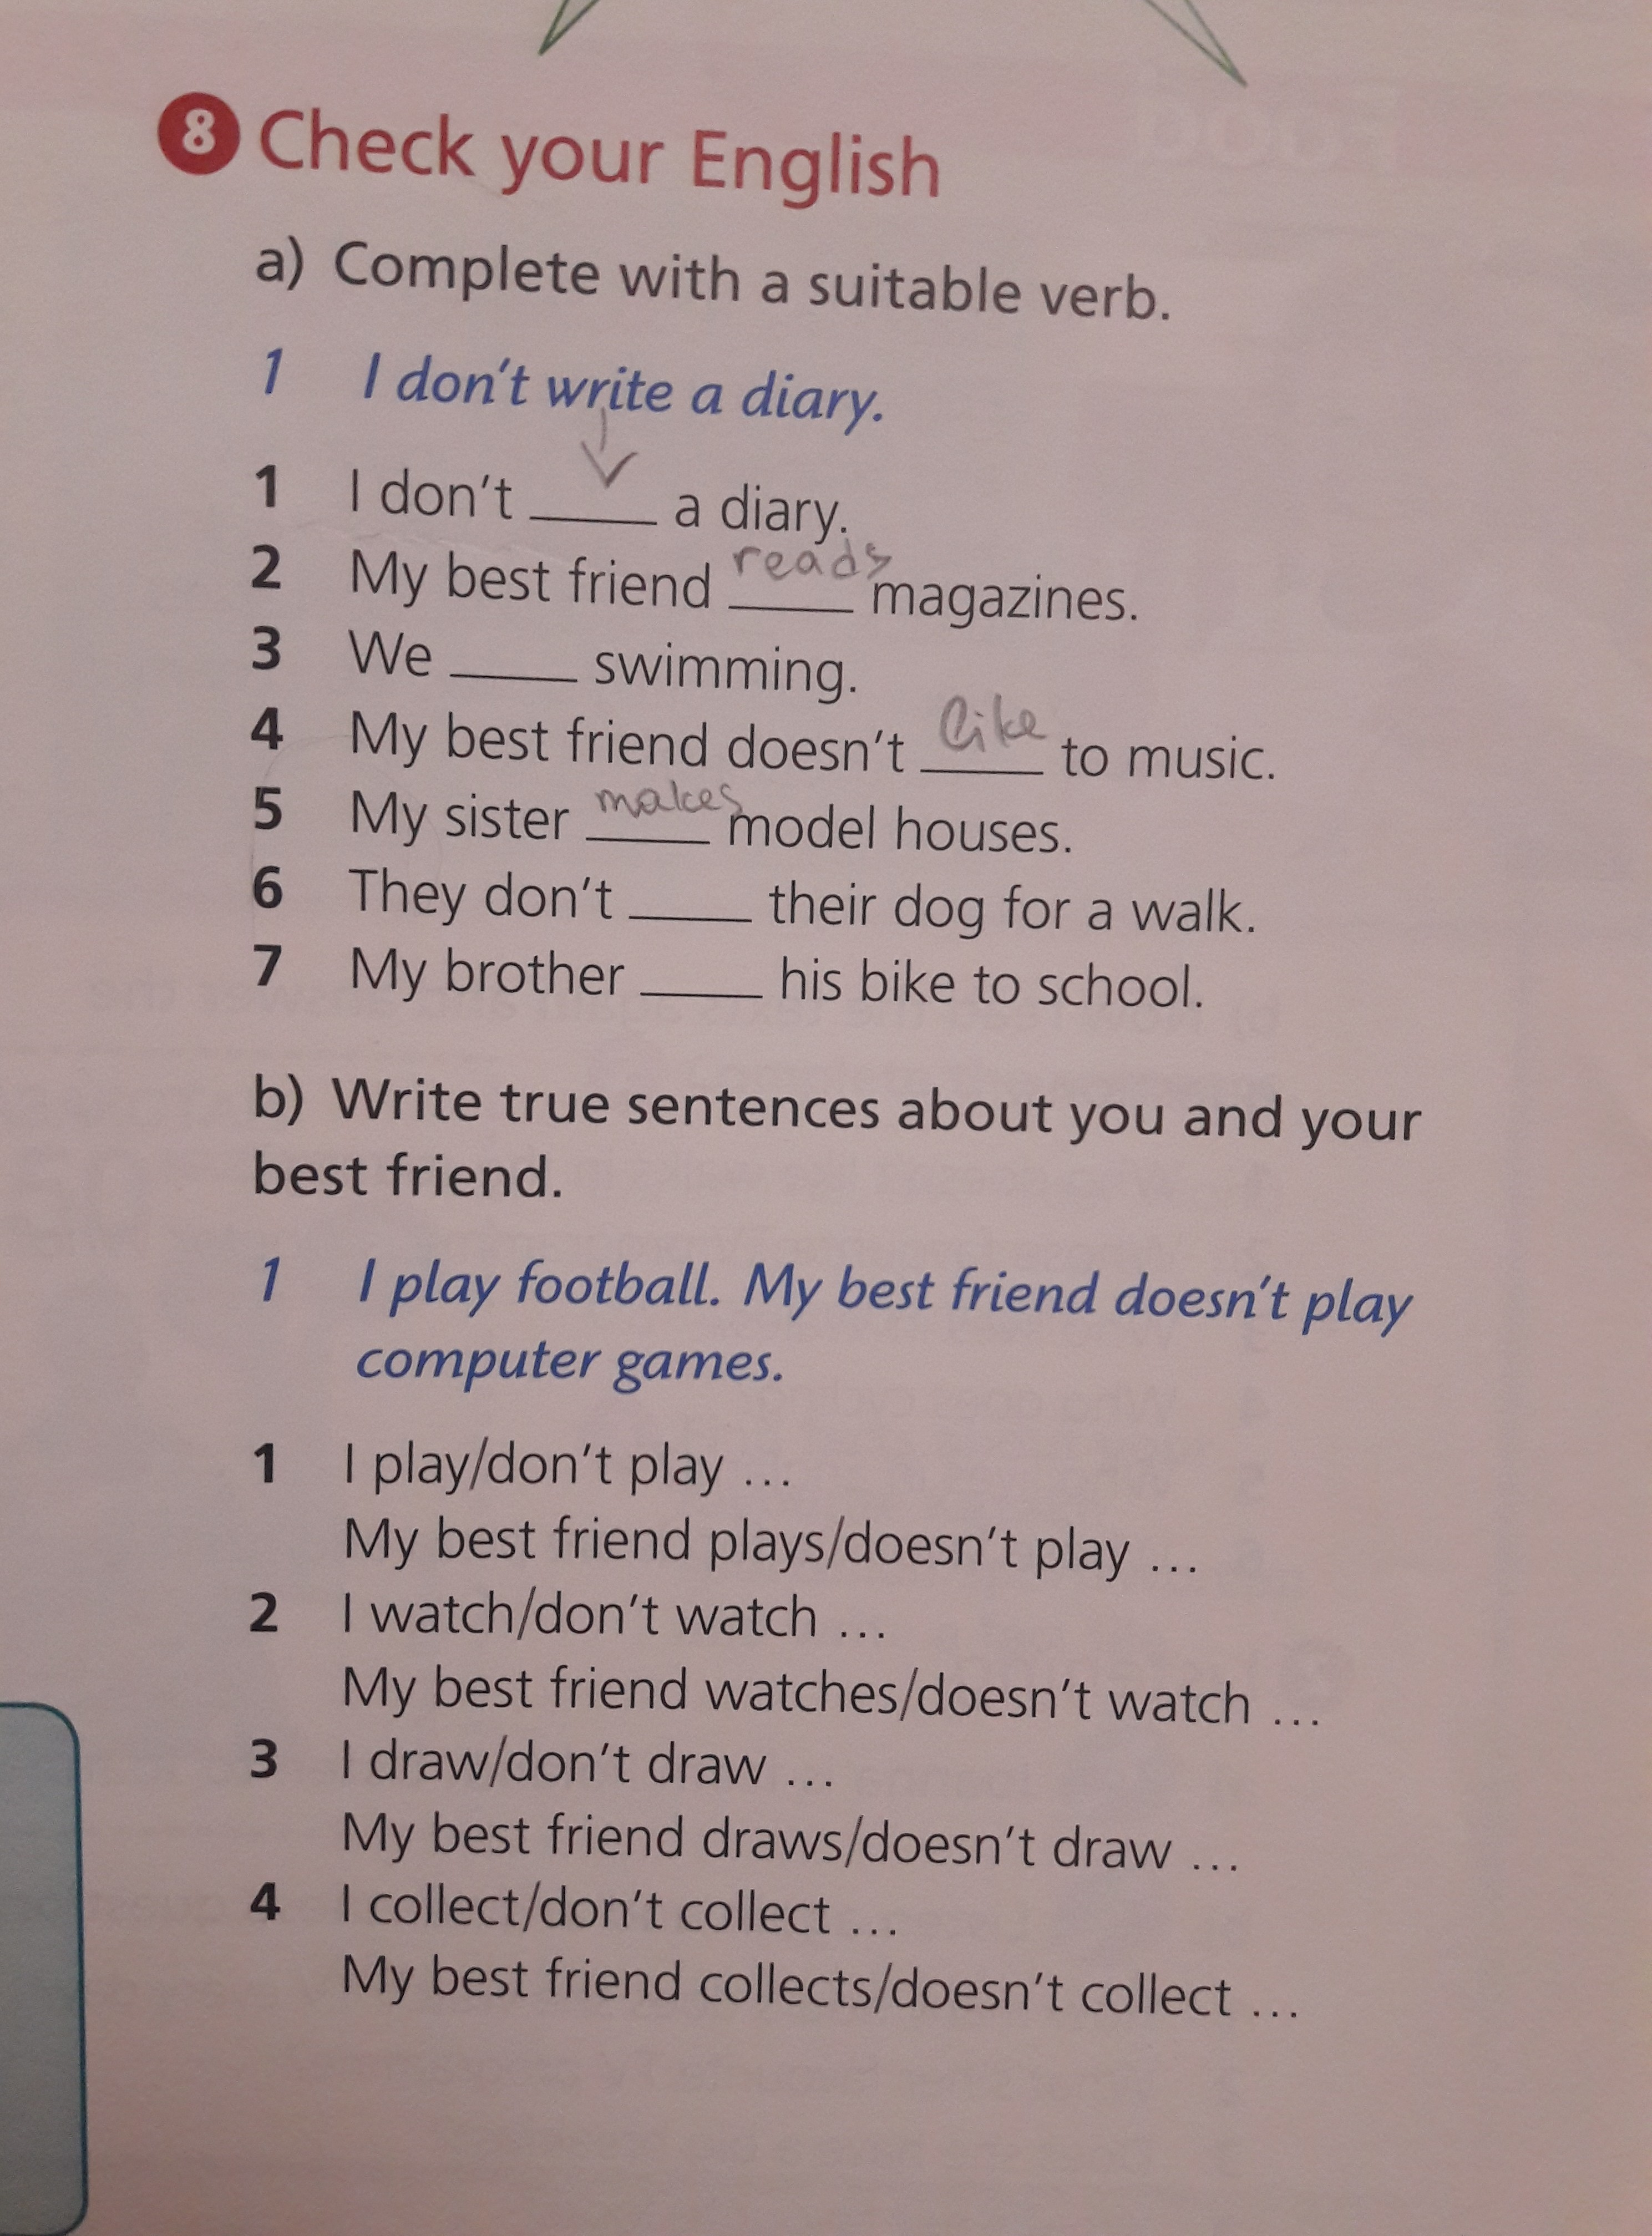 8 Check your English
a) Complete with a suitable verb.
1 I don't write a diary.
1 I don't ____ a diary.
2 My best friend reads magazines.
3 We ____ swimming.
4 My best friend doesn't like to music.
5 My sister makes model houses.
6 They don't ____ their dog for a walk.
7 My brother ____ his bike to school.
b) Write true sentences about you and your
best friend.
1 I play football. My best friend doesn't play
computer games.
1 I play/don't play ...
My best friend plays/doesn't play ...
2 I watch/don't watch ...
My best friend watches/doesn't watch ...
3 I draw/don't draw ...
My best friend draws/doesn't draw ...
4 I collect/don't collect ...
My best friend collects/doesn't collect ...